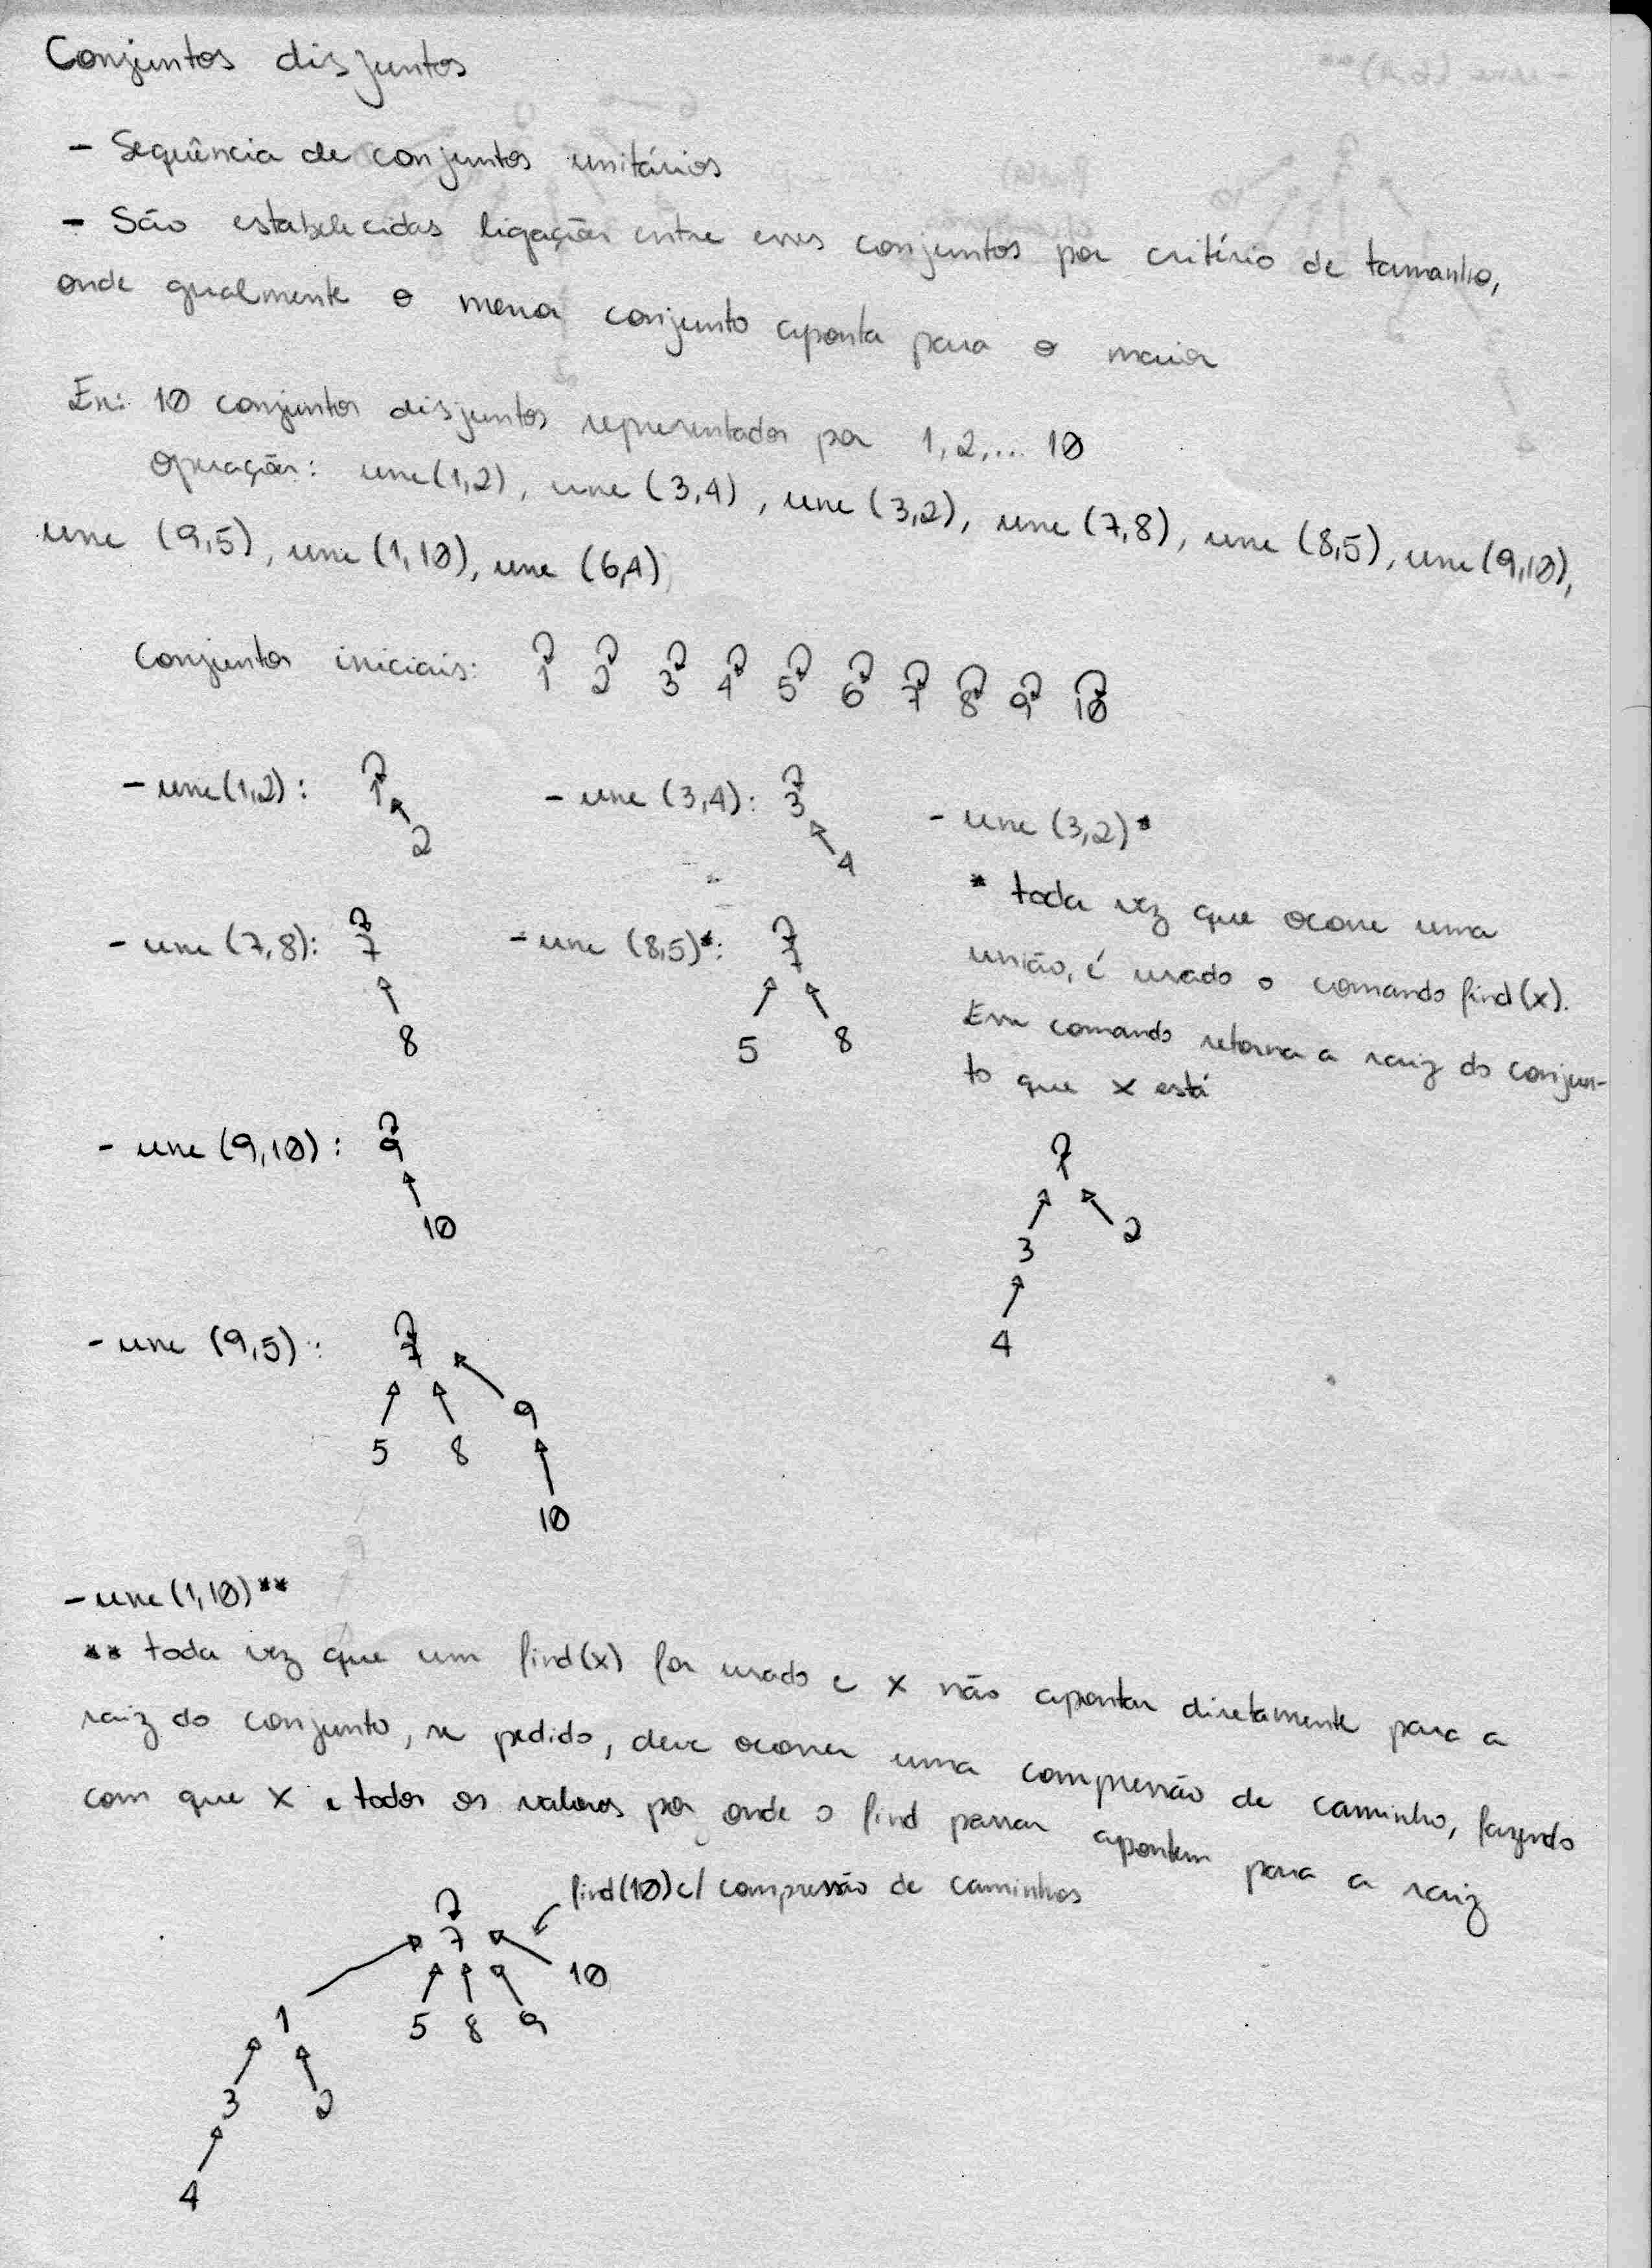 Conjuntos disjuntos
- Sequência de conjuntos unitários
- São estabelecidas ligações entre esses conjuntos por critério de tamanho,
onde gualmente o menor conjunto aponta para o maior
Ex: 10 conjuntos disjuntos representados por 1, 2, ... 10
Operações: une(1,2), une (3,4), une (3,2), une (7,8), une (8,5), une(9,10),
une (9,5), une(1,10), une (6,4)
Conjuntos iniciais: 1 2 3 4 5 6 7 8 9 10
- une(1,2): 1
2
- une (3,4): 3
4
- une (3,2)*
* toda vez que ocorre uma
união, é usado o comando find(x).
Esse comando retorna a raiz do conjun-
to que x está
1
3 2
4
- une (7,8): 7
8
- une (8,5)*: 7
5 8
- une (9,10): 9
10
- une (9,5): 7
9
5 8
10
- une(1,10)**
** toda vez que um find(x) for usado e x não apontar diretamente para a
raiz do conjunto, se pedido, deve ocorrer uma compressão de caminho, fazendo
com que x e todos os valores por onde o find passar apontem para a raiz
find(10) c/ compressão de caminhos
7
10
1 5 8 9
3 2
4